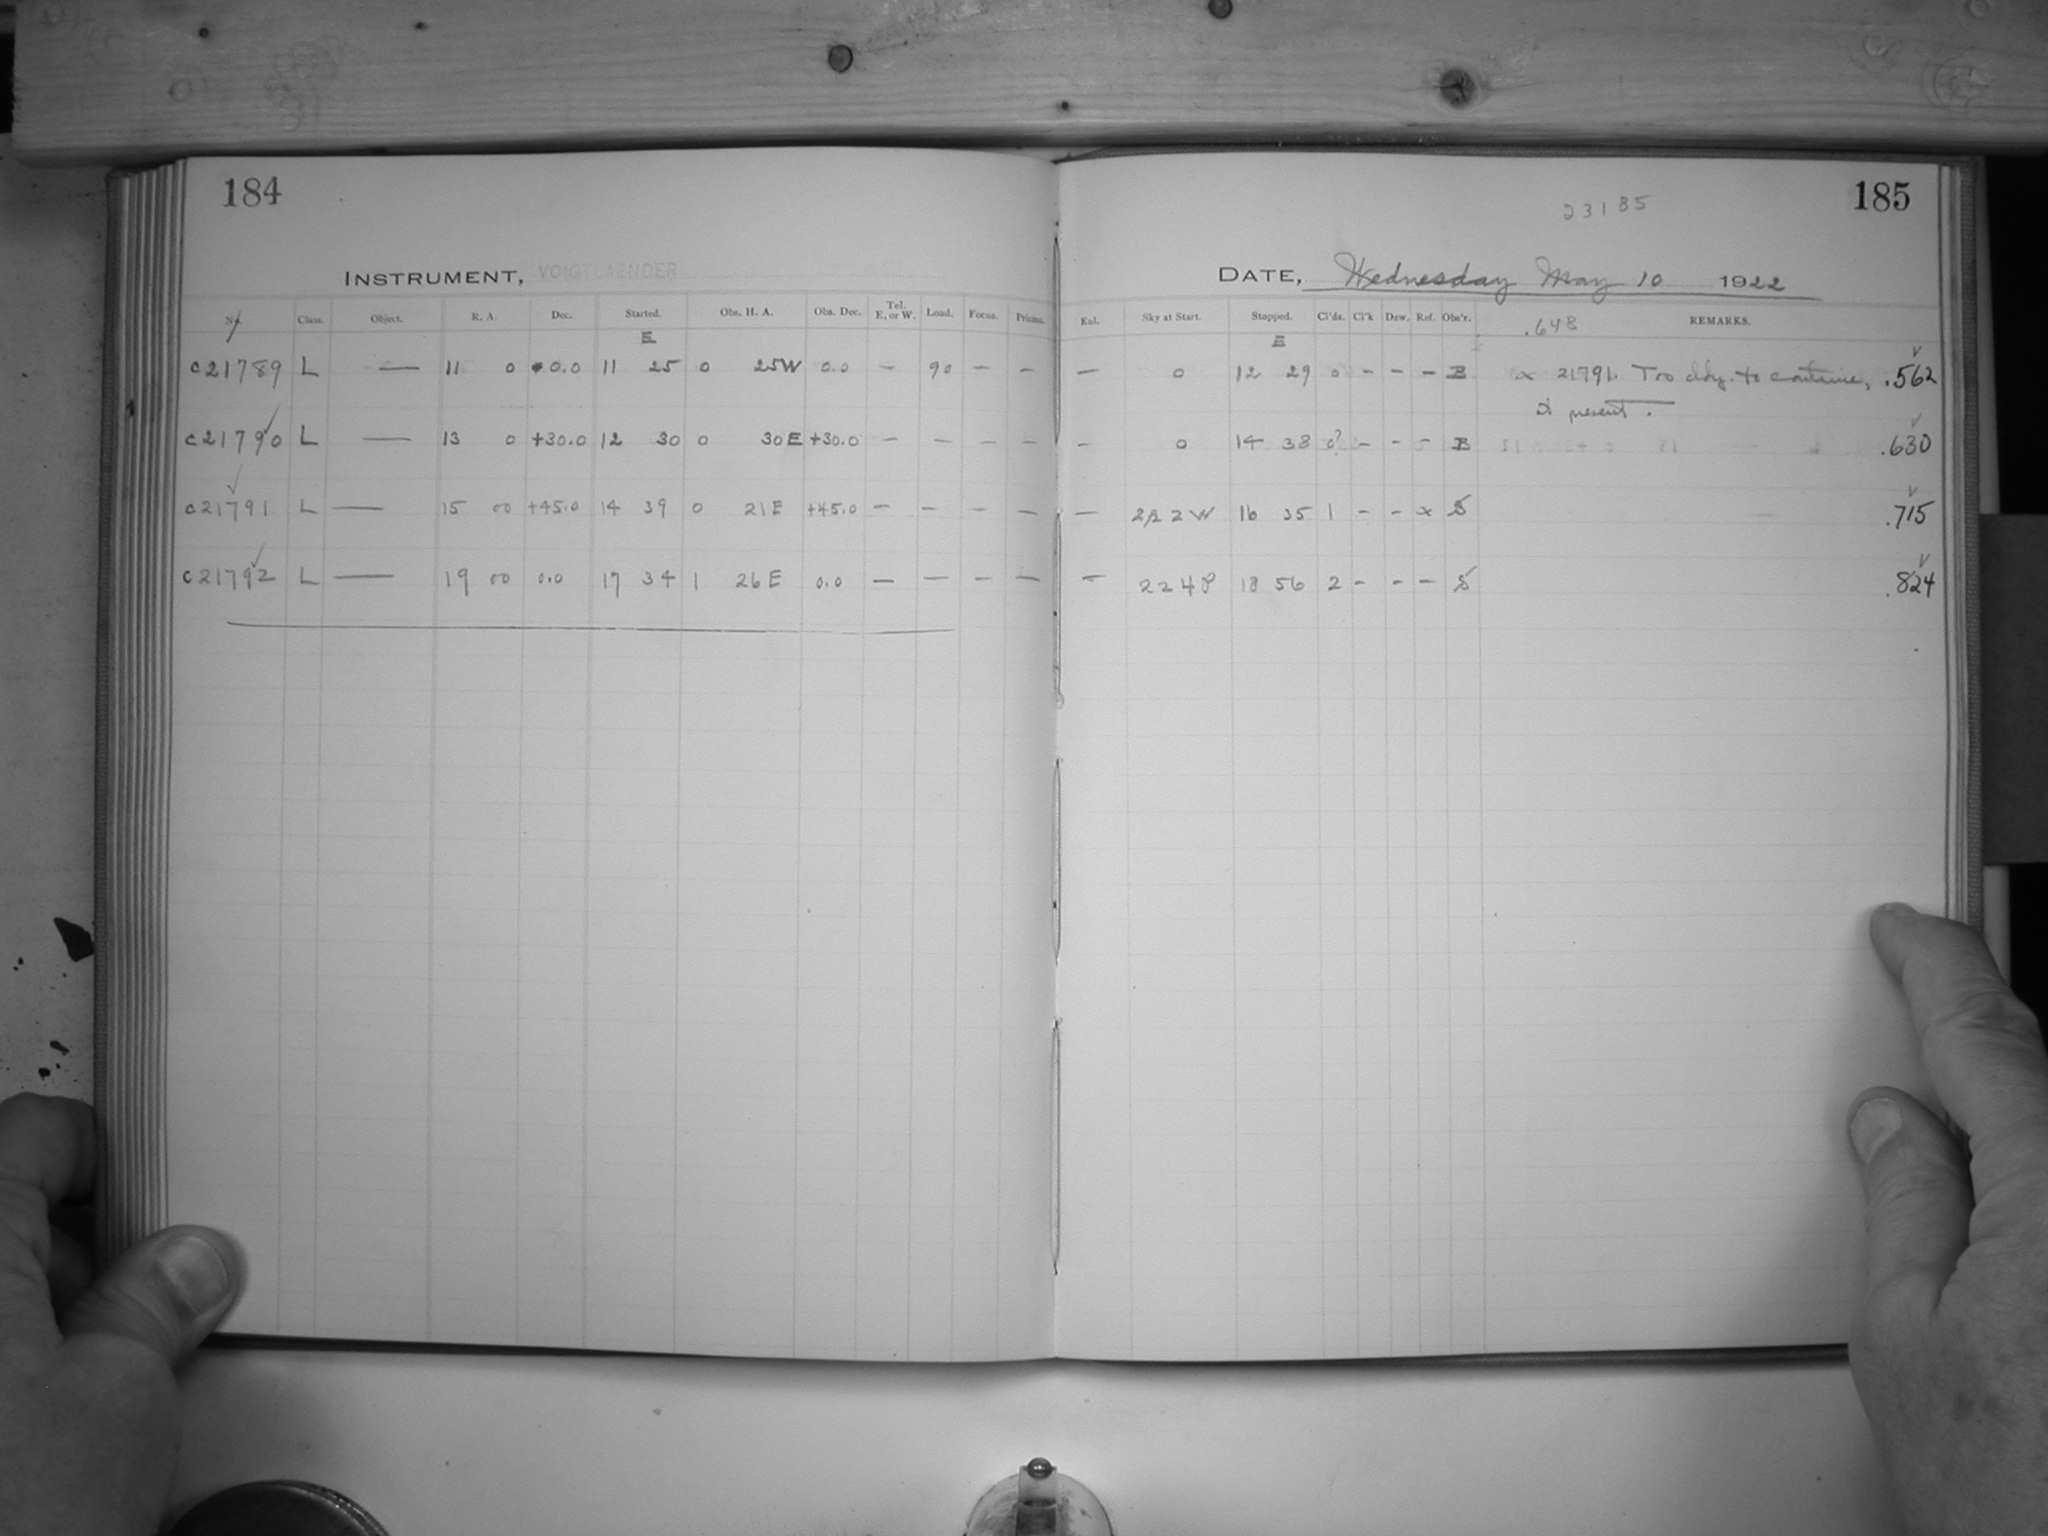 184
INSTRUMENT, VOIGTLAENDER
No. Class. Object. R. A. Dec. Started. Obs. H. A. Obs. Dec. Tel. E. or W. Load. Focus. Prisms.
E
c21789 L — 11 0 0.0 11 25 0 25W 0.0 — 90 — —
c21790 L — 13 0 +30.0 12 30 0 30E +30.0 — — — —
c21791 L — 15 00 +45.0 14 39 0 21E +45.0 — — — —
c21792 L — 19 00 0.0 17 34 1 26E 0.0 — — — —
23185
185
DATE, Wednesday May 10 1922
Eul. Sky at Start. Stopped. Cl'ds. Cl'k Dew. Ref. Obs'r. .648 REMARKS.
E
— 0 12 29 0 - - - B x 21791. Too cldy. to continue, .562
at present.
- 0 14 38 0? - - - B .630
— 2 W 16 35 1 - - x S .715
— 2248 18 56 2 - - - S .824